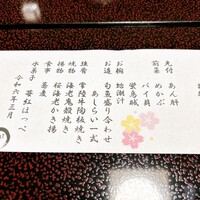 先付 あん肝
前菜 めかぶ
バイ貝
蛍烏賊
お椀 蛤潮汁
お造 旬魚盛り合わせ
あしらい一式
強肴 常陸牛陶板焼き
焼物 海老鬼殻焼き
揚物 桜海老かき揚
食事 蕎麦
水菓子 苺紅ほっぺ
令和六年三月